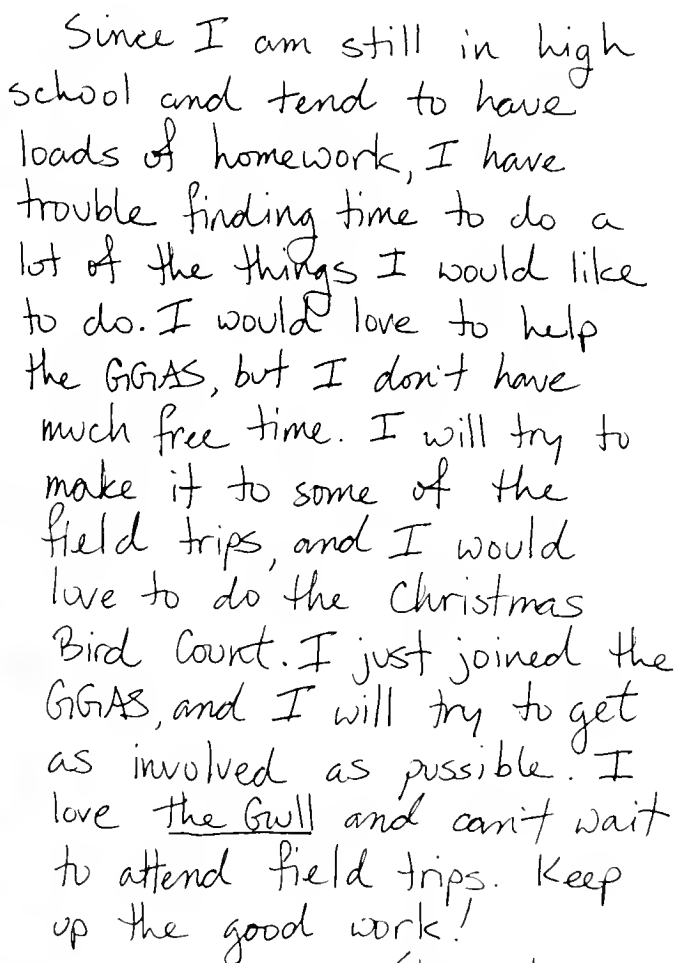 Since I am still in high
school and tend to have
loads of homework, I have
trouble finding time to do a
lot of the things I would like
to do. I would love to help
the GGAS, but I don't have
much free time. I will try to
make it to some of the
field trips, and I would
love to do the Christmas
Bird Count. I just joined the
GGAS, and I will try to get
as involved as possible. I
love the Gull and can't wait
to attend field trips. Keep
up the good work!